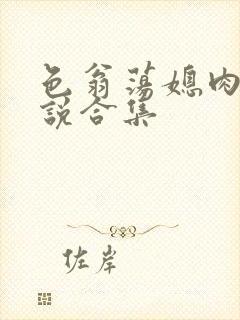 色翁荡媳肉
说合集
佐岸